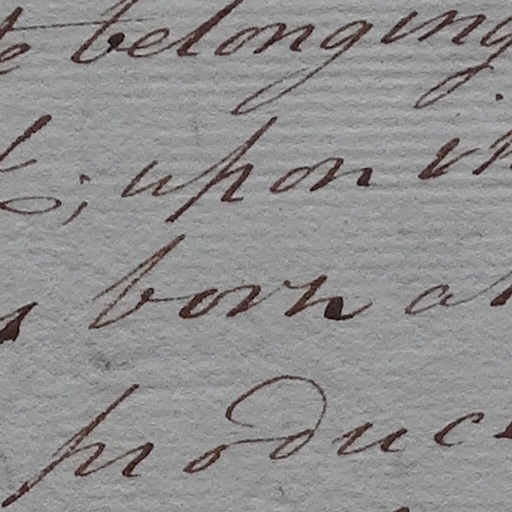 belonging
; upon
born a
produc